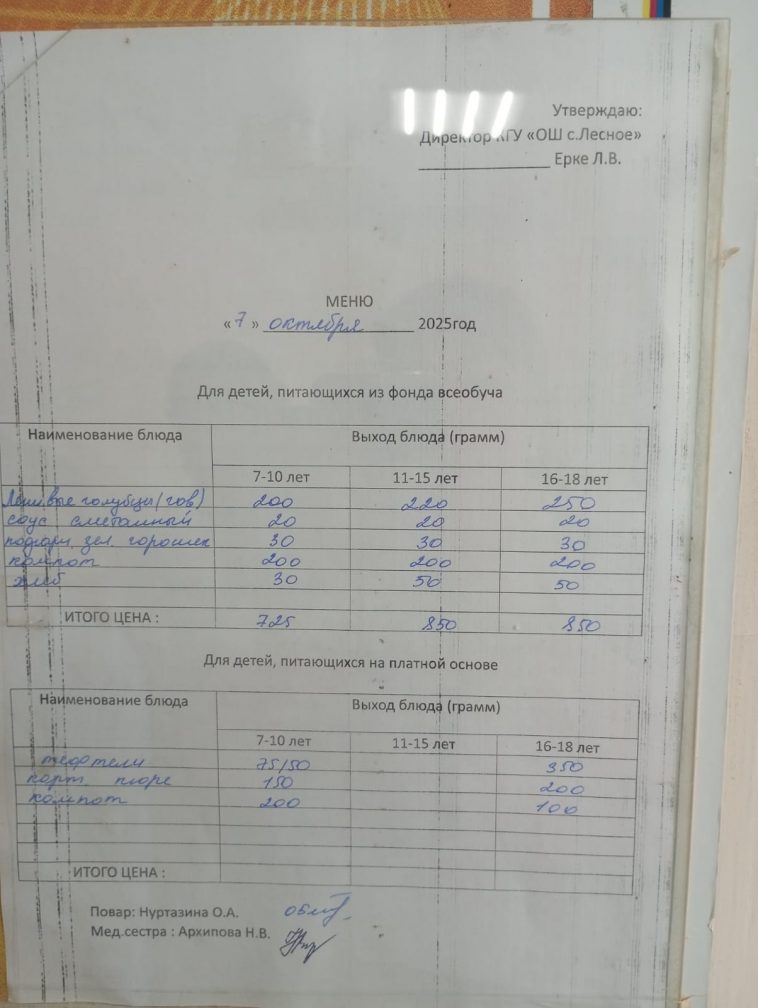 Утверждаю:
Директор КГУ «ОШ с.Лесное»
Ерке Л.В.
МЕНЮ
« 7 » октября 2025год
Для детей, питающихся из фонда всеобуча
Наименование блюда Выход блюда (грамм)
7-10 лет 11-15 лет 16-18 лет
Ленивые голубцы (гов) 200 220 250
соус сметанный 20 20 20
подгарн. зел. горошек 30 30 30
компот 200 200 200
хлеб 30 50 50
ИТОГО ЦЕНА : 725 850 850
Для детей, питающихся на платной основе
Наименование блюда Выход блюда (грамм)
7-10 лет 11-15 лет 16-18 лет
тефтели 75/50 350
карт. пюре 150 200
компот 200 100
ИТОГО ЦЕНА :
Повар: Нуртазина О.А.
Мед.сестра : Архипова Н.В.